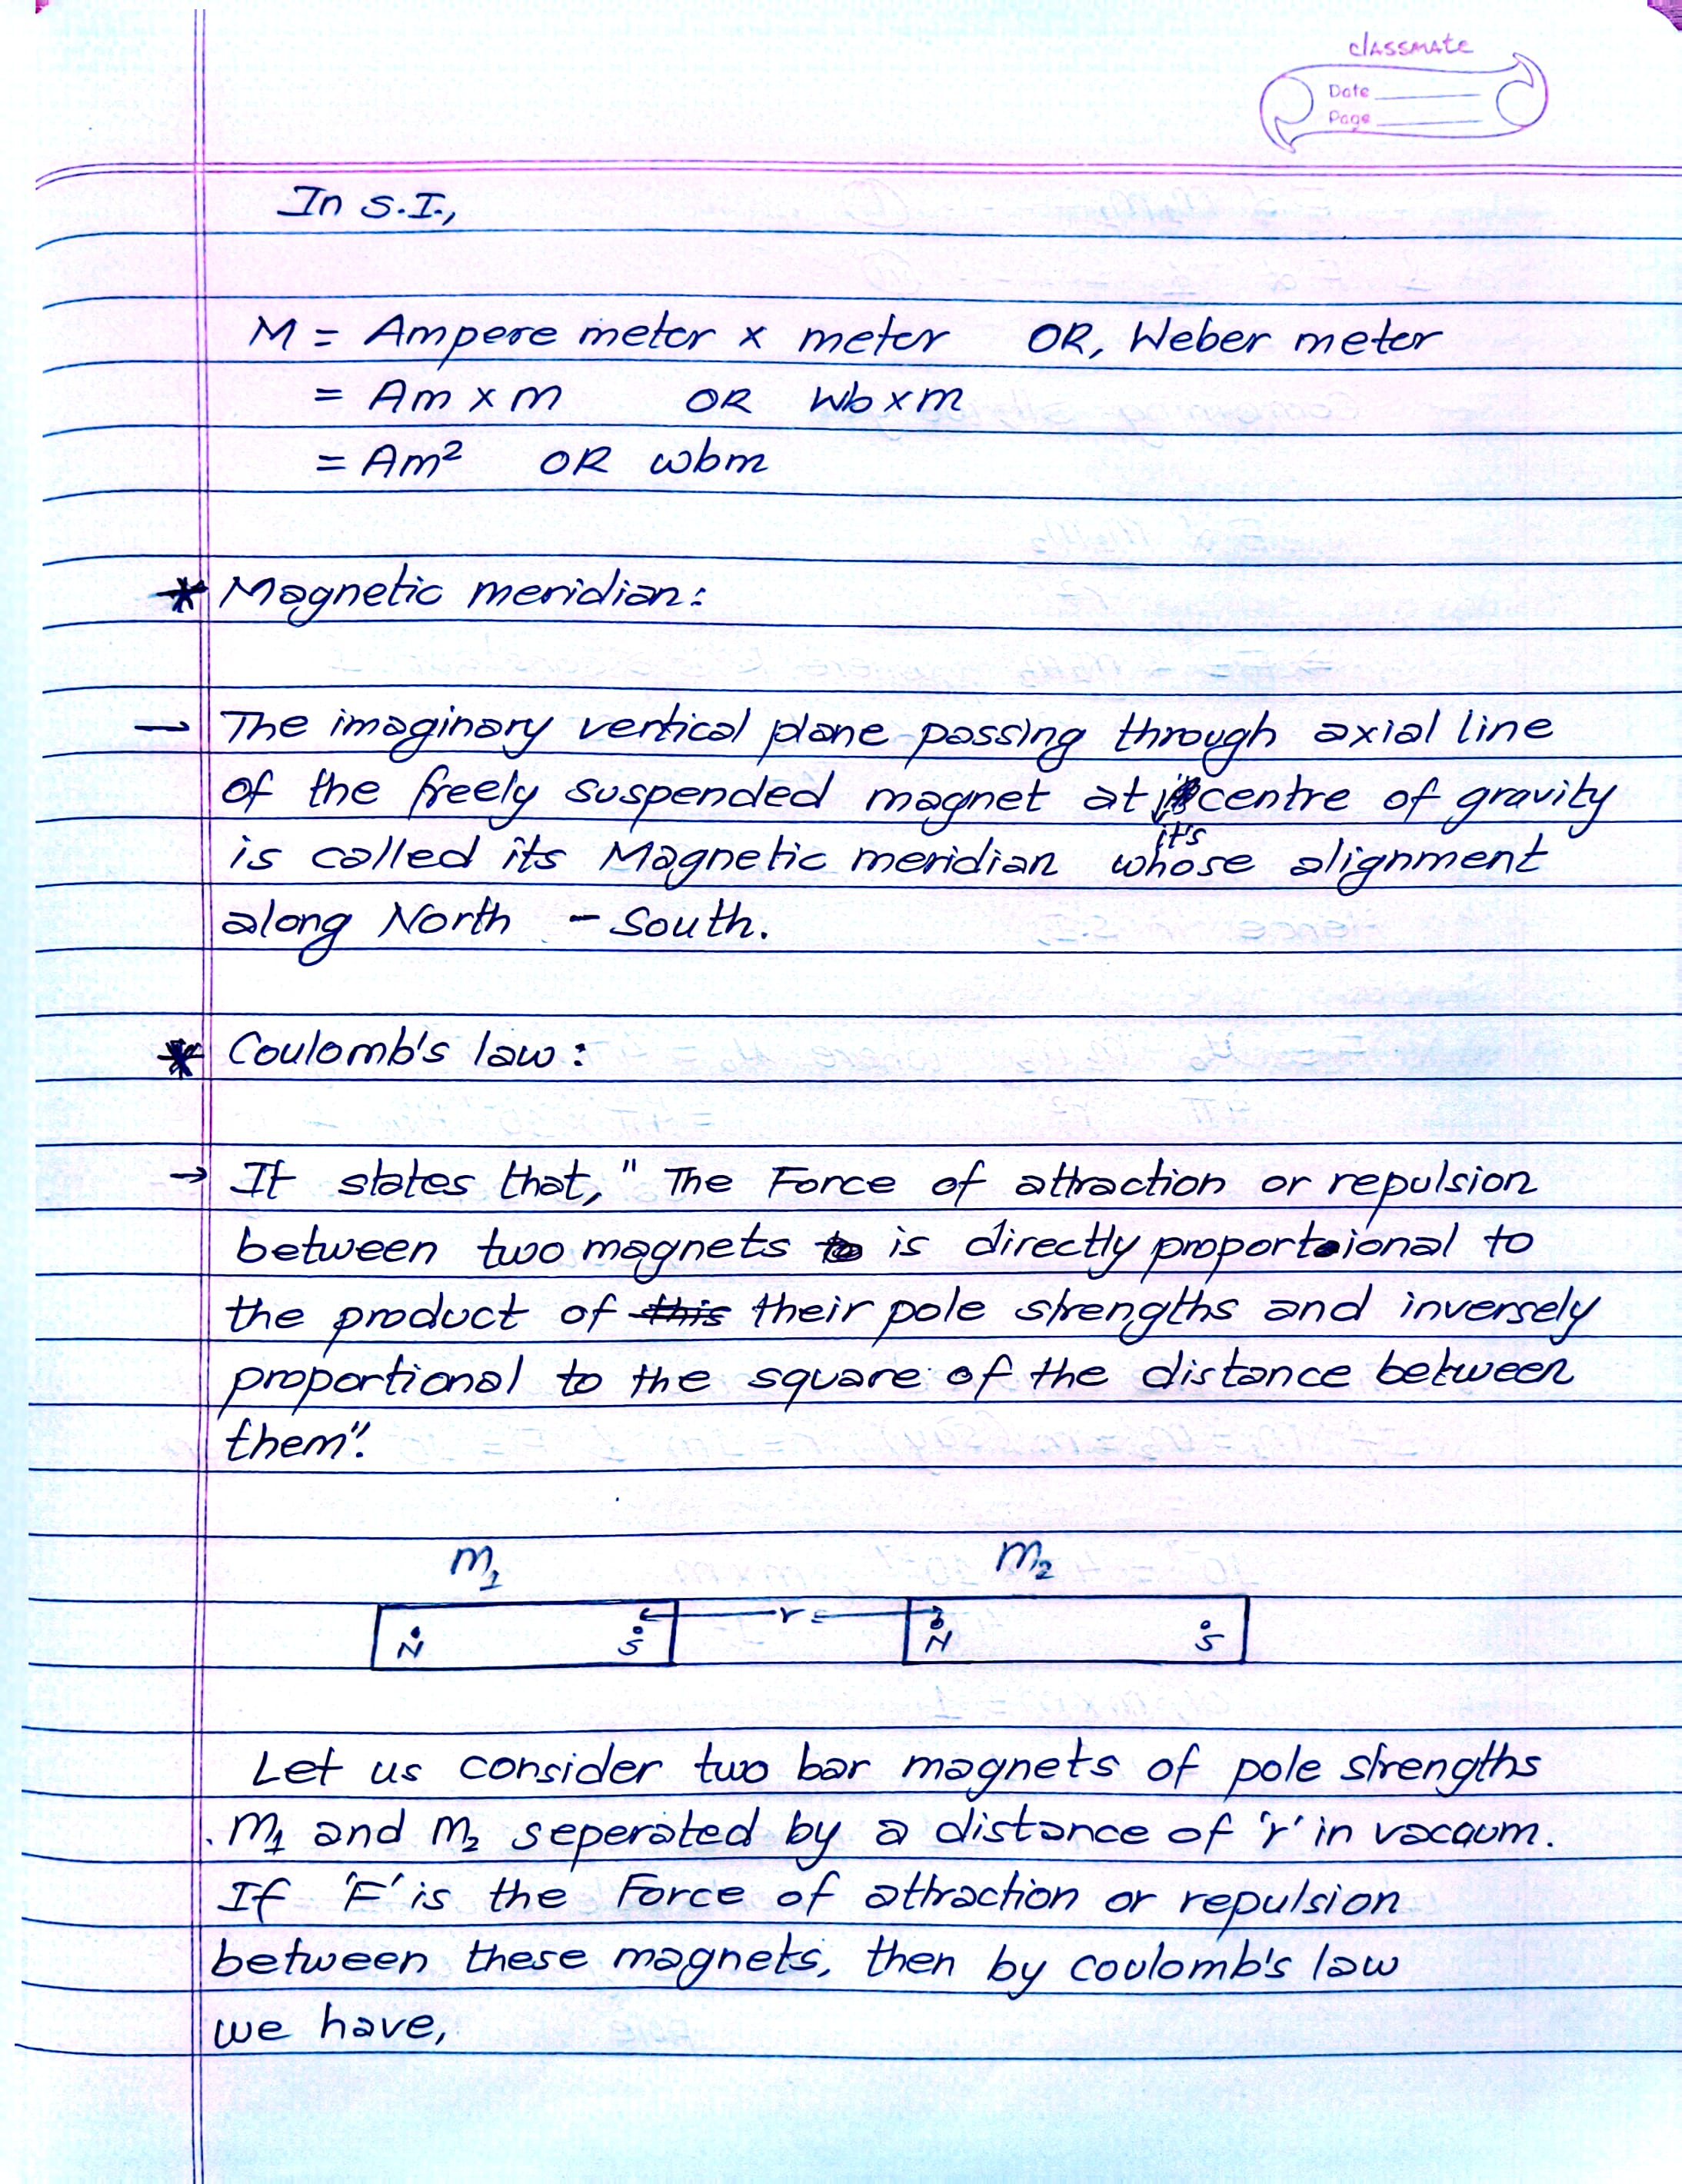 classmate
Date
Page
In S.I.,
M = Ampere meter x meter OR, Weber meter
= Am x m OR Wb x m
= Am² OR wbm
* Magnetic meridian:
→ The imaginary vertical plane passing through axial line
of the freely suspended magnet at it's centre of gravity
is called its Magnetic meridian whose alignment
along North - South.
* Coulomb's law:
→ It states that, " The Force of attraction or repulsion
between two magnets is directly proportional to
the product of this their pole strengths and inversely
proportional to the square of the distance between
them".
m₁ m₂
N S r N S
Let us consider two bar magnets of pole strengths
m₁ and m₂ seperated by a distance of 'r' in vacaum.
If 'F' is the Force of attraction or repulsion
between these magnets, then by coulomb's law
we have,